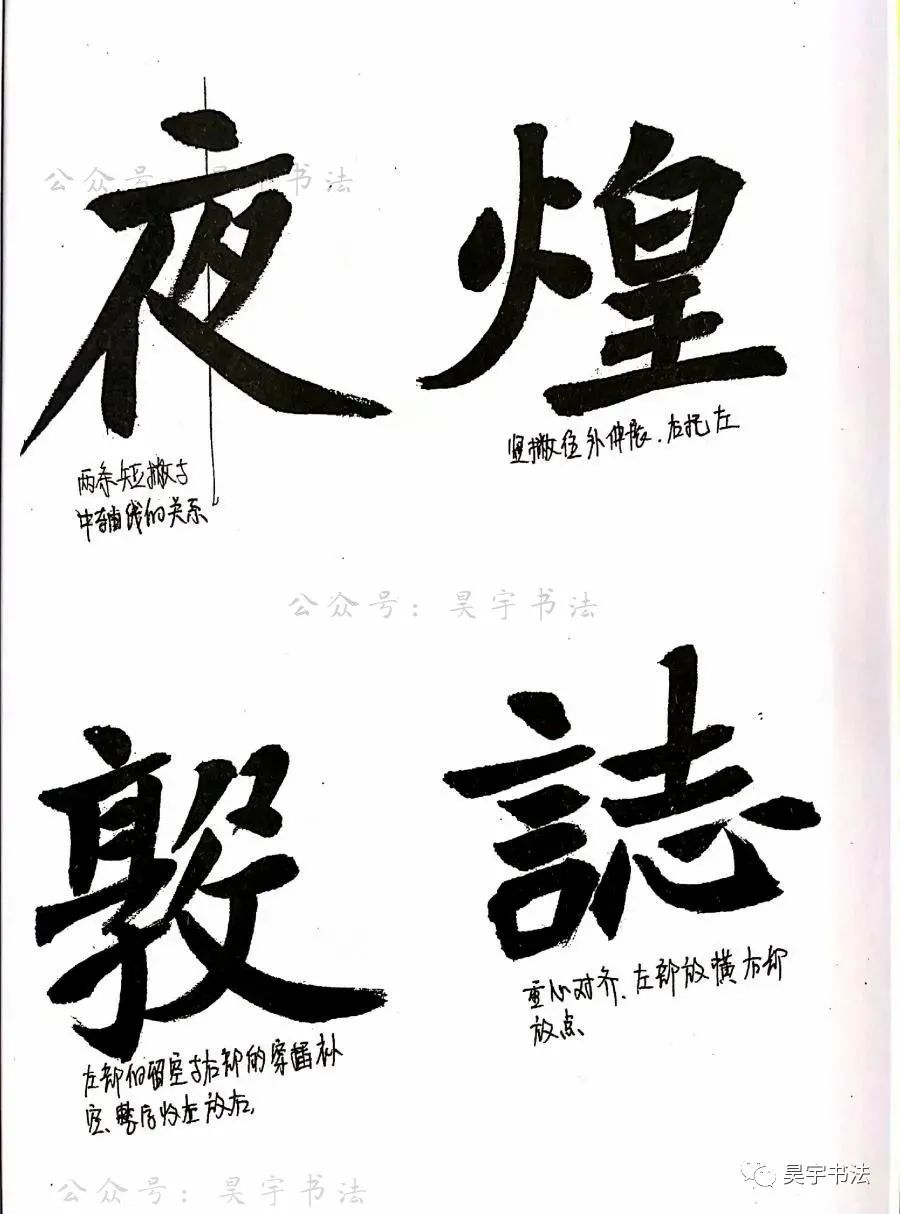 夜
煌
公众号：昊宇书法
两条短撇与
中轴线的关系
竖撇往外伸展、右托左
公众号：昊宇书法
敦
誌
左部的留空与右部的穿插补
空、整店收左放右，
重心对齐、左部放横右部
放点
公众号：昊宇书法
昊宇书法